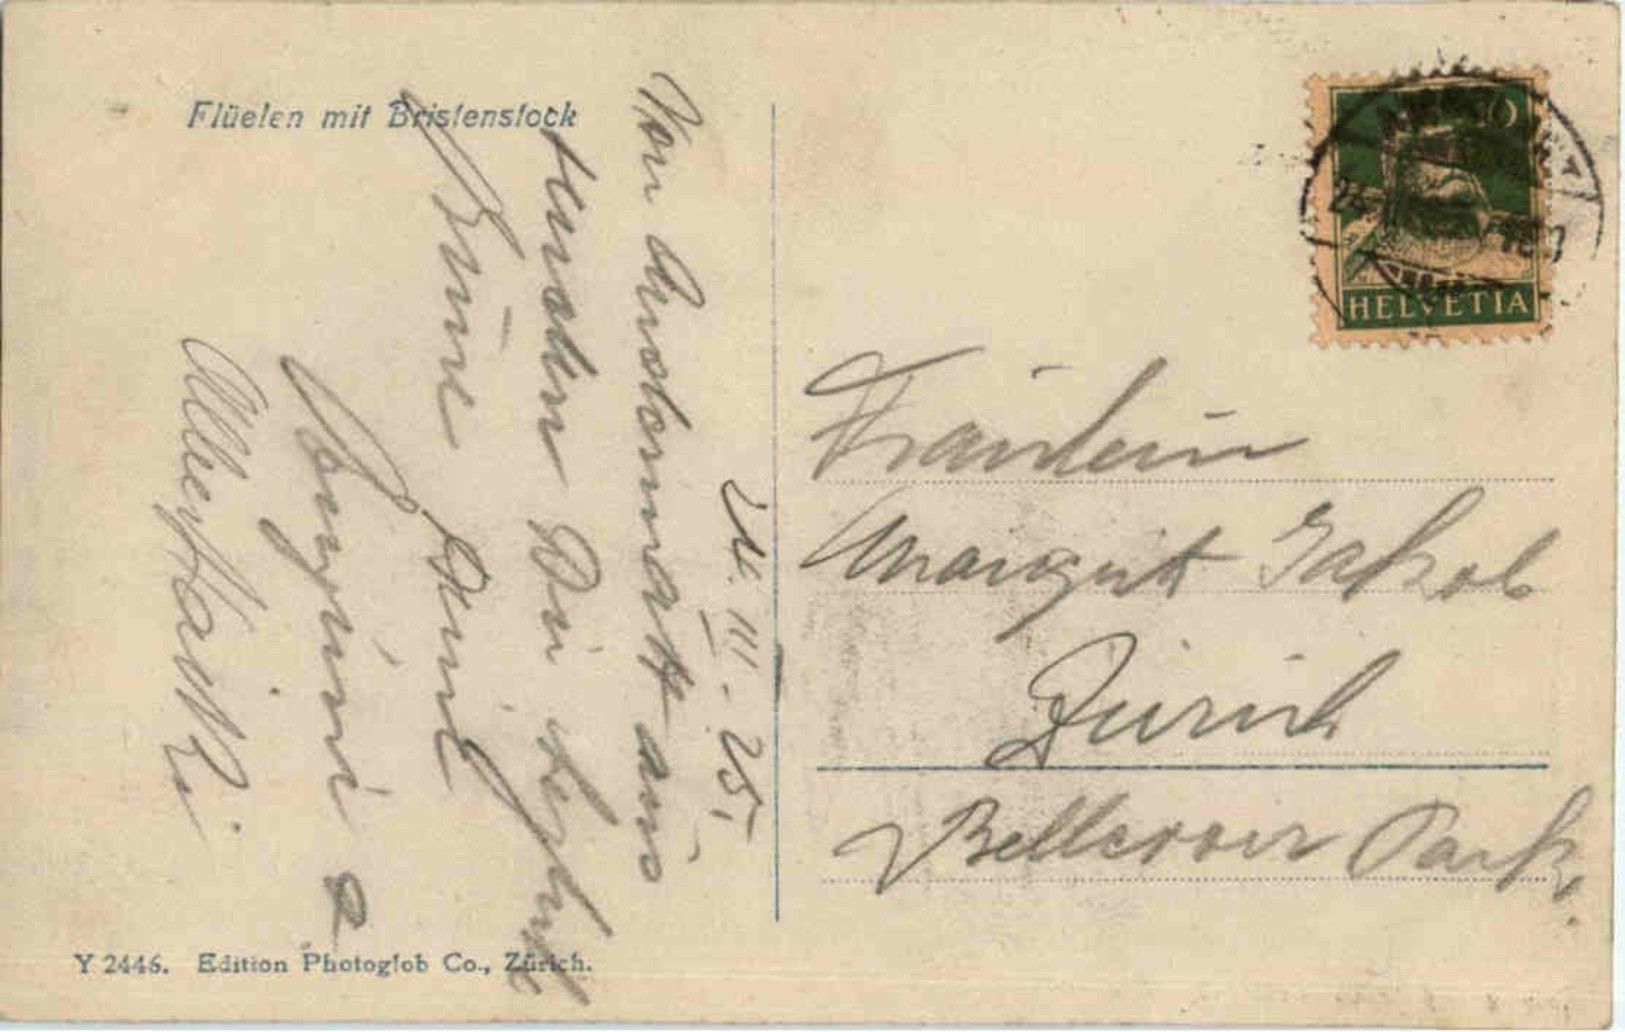 Flüelen mit Bristenstock
21. III. 25.
Von Andermatt aus
senden Dir herzl.
Grüsse
Deine
&
HELVETIA
Fräulein
Margrit Jakob
Zürich
Bellevoir Park.
Y 2446. Edition Photoglob Co., Zürich.